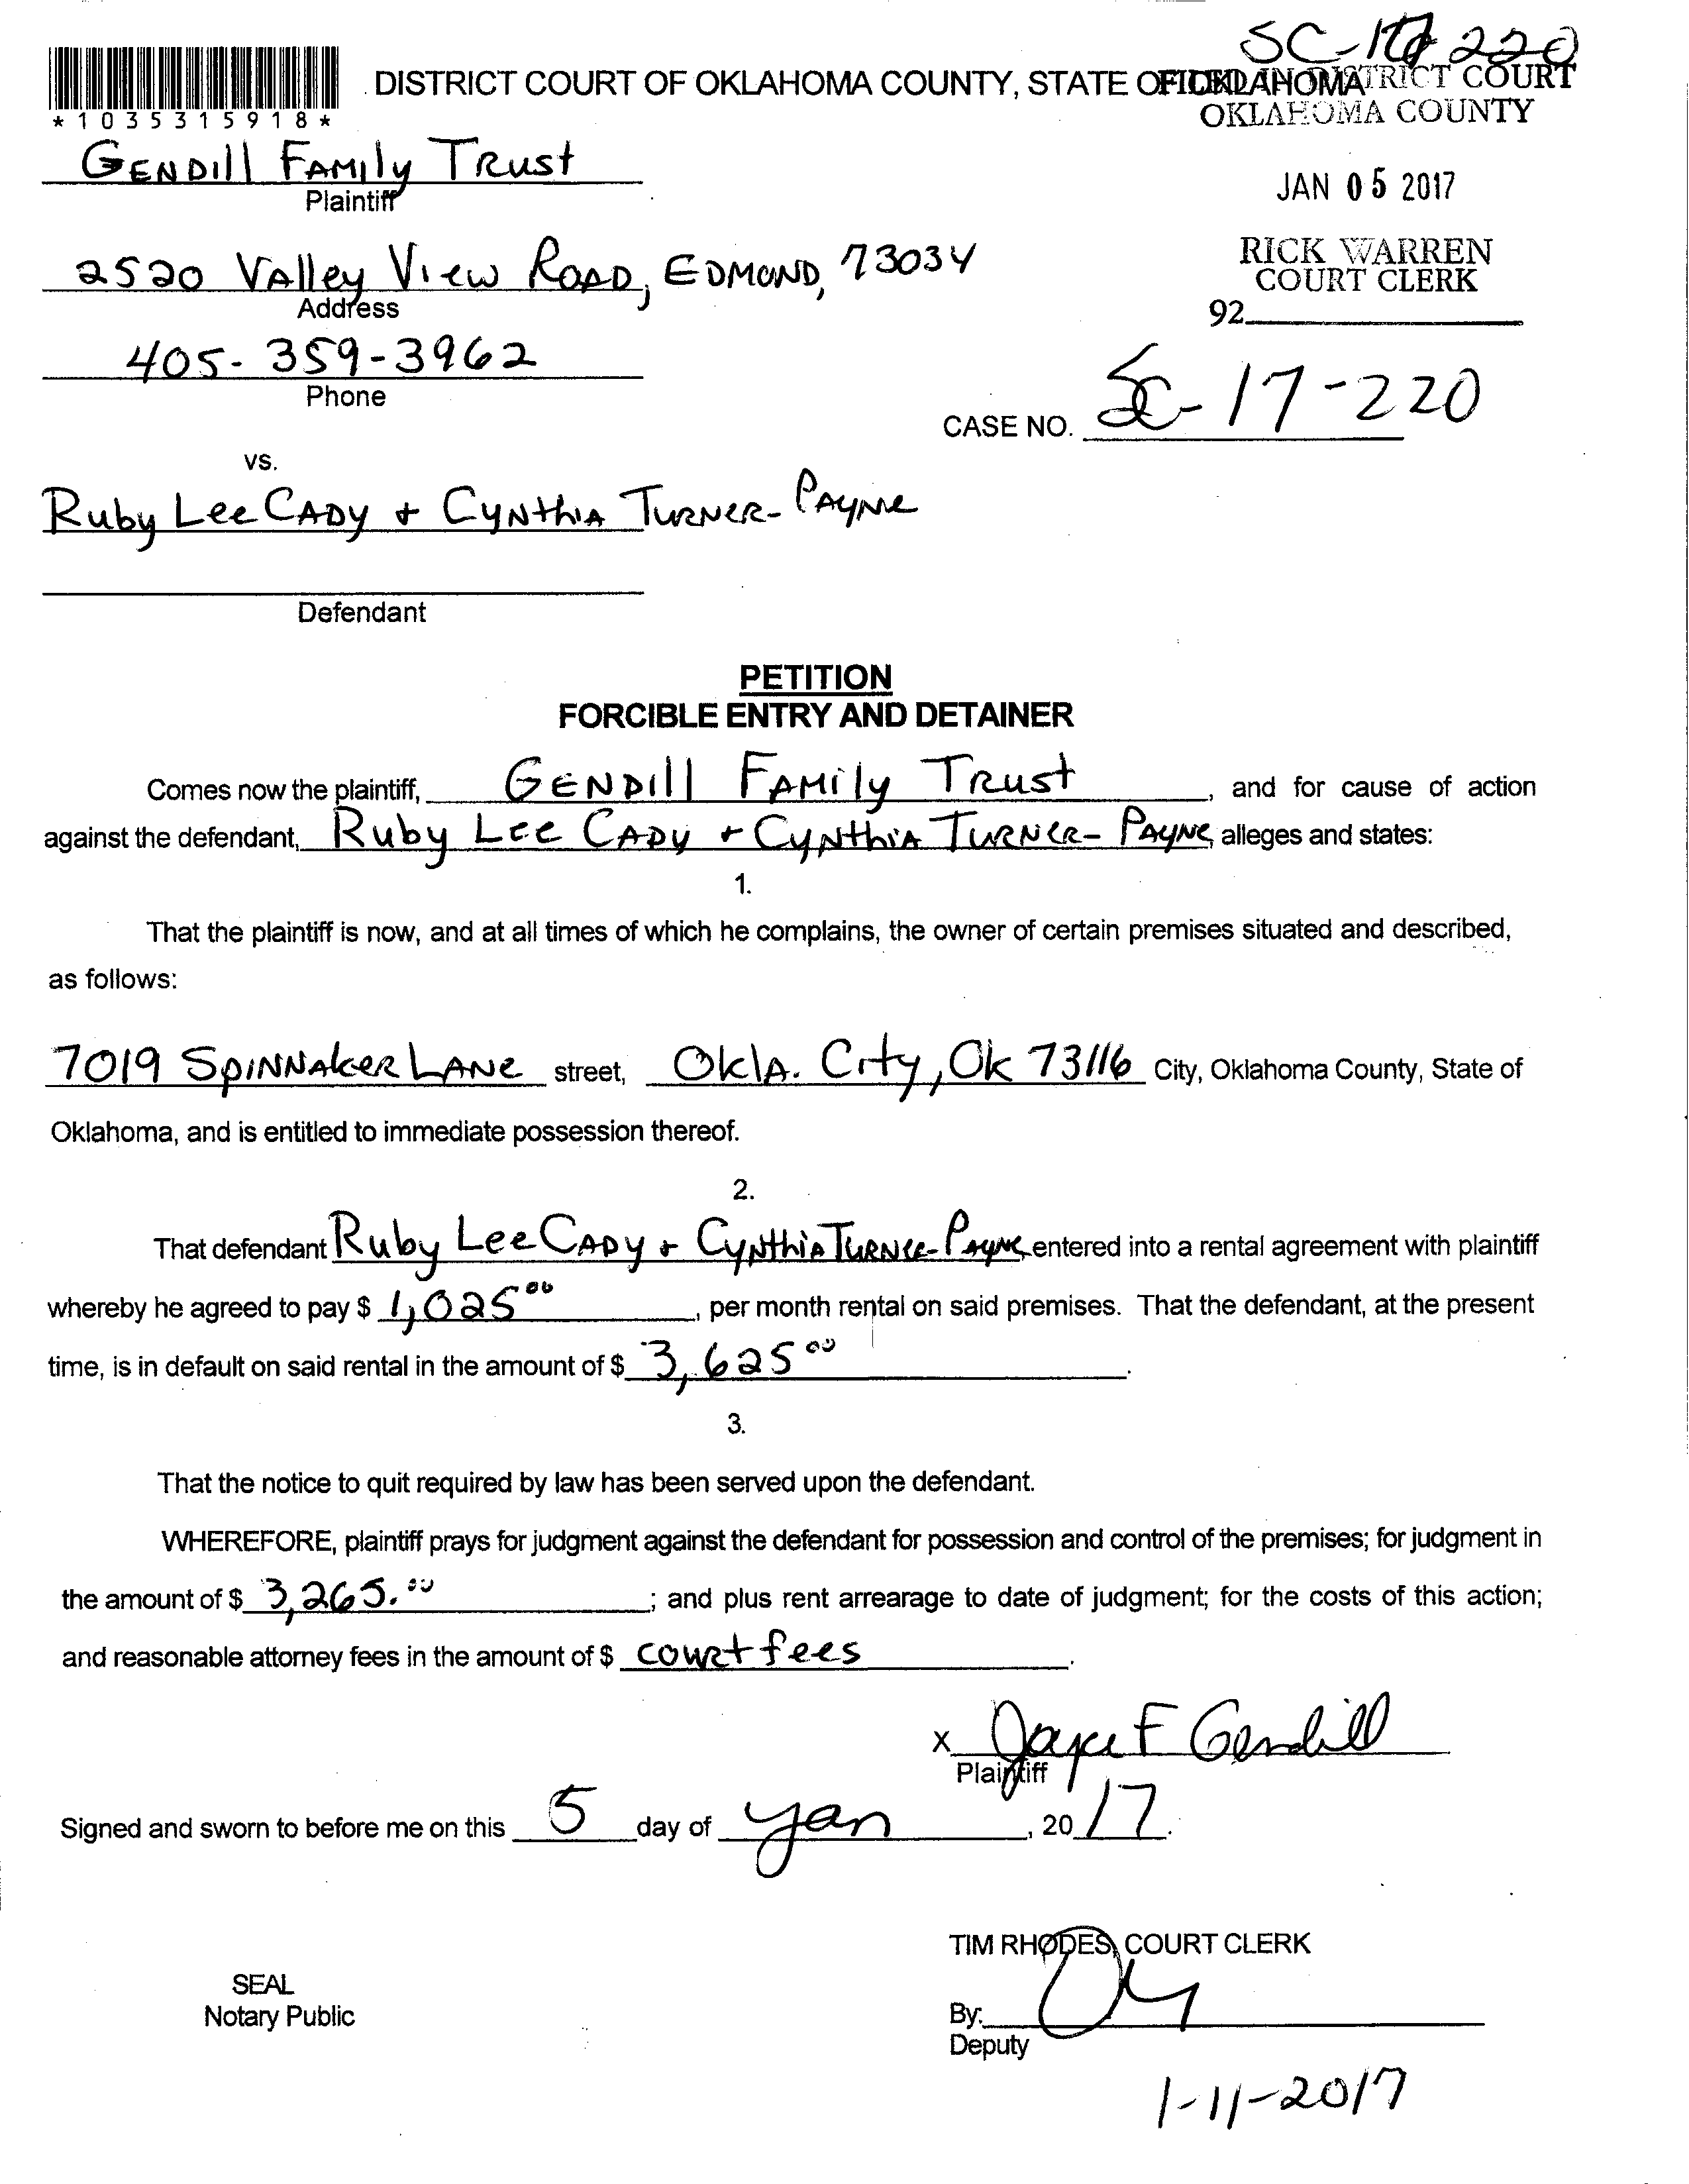 SC-17-220
DISTRICT COURT OF OKLAHOMA COUNTY, STATE OF OKLAHOMA
FILED IN DISTRICT COURT
OKLAHOMA COUNTY
*1035315918*
GENDill FAMily TRust
Plaintiff
JAN 05 2017
2520 VAlley View ROAD, EDMOND, 73034
Address
RICK WARREN
COURT CLERK
92
405-359-3962
Phone
CASE NO. SC-17-220
vs.
Ruby Lee CADy + CyNthiA TuRNeR-PAyNe
Defendant
PETITION
FORCIBLE ENTRY AND DETAINER
Comes now the plaintiff, GENDill FAMily TRust, and for cause of action
against the defendant, Ruby Lee CADy + CyNthiA TuRNeR-PAyNe, alleges and states:
1.
That the plaintiff is now, and at all times of which he complains, the owner of certain premises situated and described,
as follows:
7019 SpiNNAkeR LANe street, OklA. City, Ok 73116 City, Oklahoma County, State of
Oklahoma, and is entitled to immediate possession thereof.
2.
That defendant Ruby Lee CADy + CyNthiA TuRNeR-PAyNe entered into a rental agreement with plaintiff
whereby he agreed to pay $ 1,025 00, per month rental on said premises. That the defendant, at the present
time, is in default on said rental in the amount of $ 3,625 00.
3.
That the notice to quit required by law has been served upon the defendant.
WHEREFORE, plaintiff prays for judgment against the defendant for possession and control of the premises; for judgment in
the amount of $ 3,265.00; and plus rent arrearage to date of judgment; for the costs of this action;
and reasonable attorney fees in the amount of $ court fees.
X Joyce F Gendill
Plaintiff
Signed and sworn to before me on this 5 day of Jan, 2017.
TIM RHODES, COURT CLERK
SEAL
Notary Public
By:
Deputy
1-11-2017